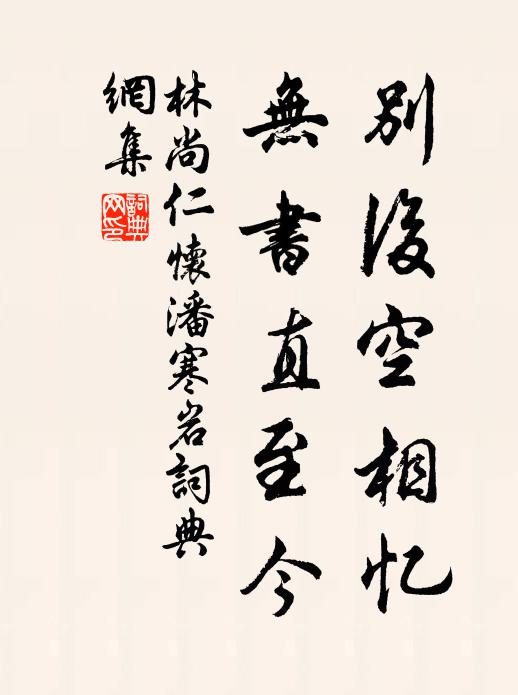 別後空相忆
無書直至今
林尚仁懷潘寒岩詞典
網集
詞典
网印